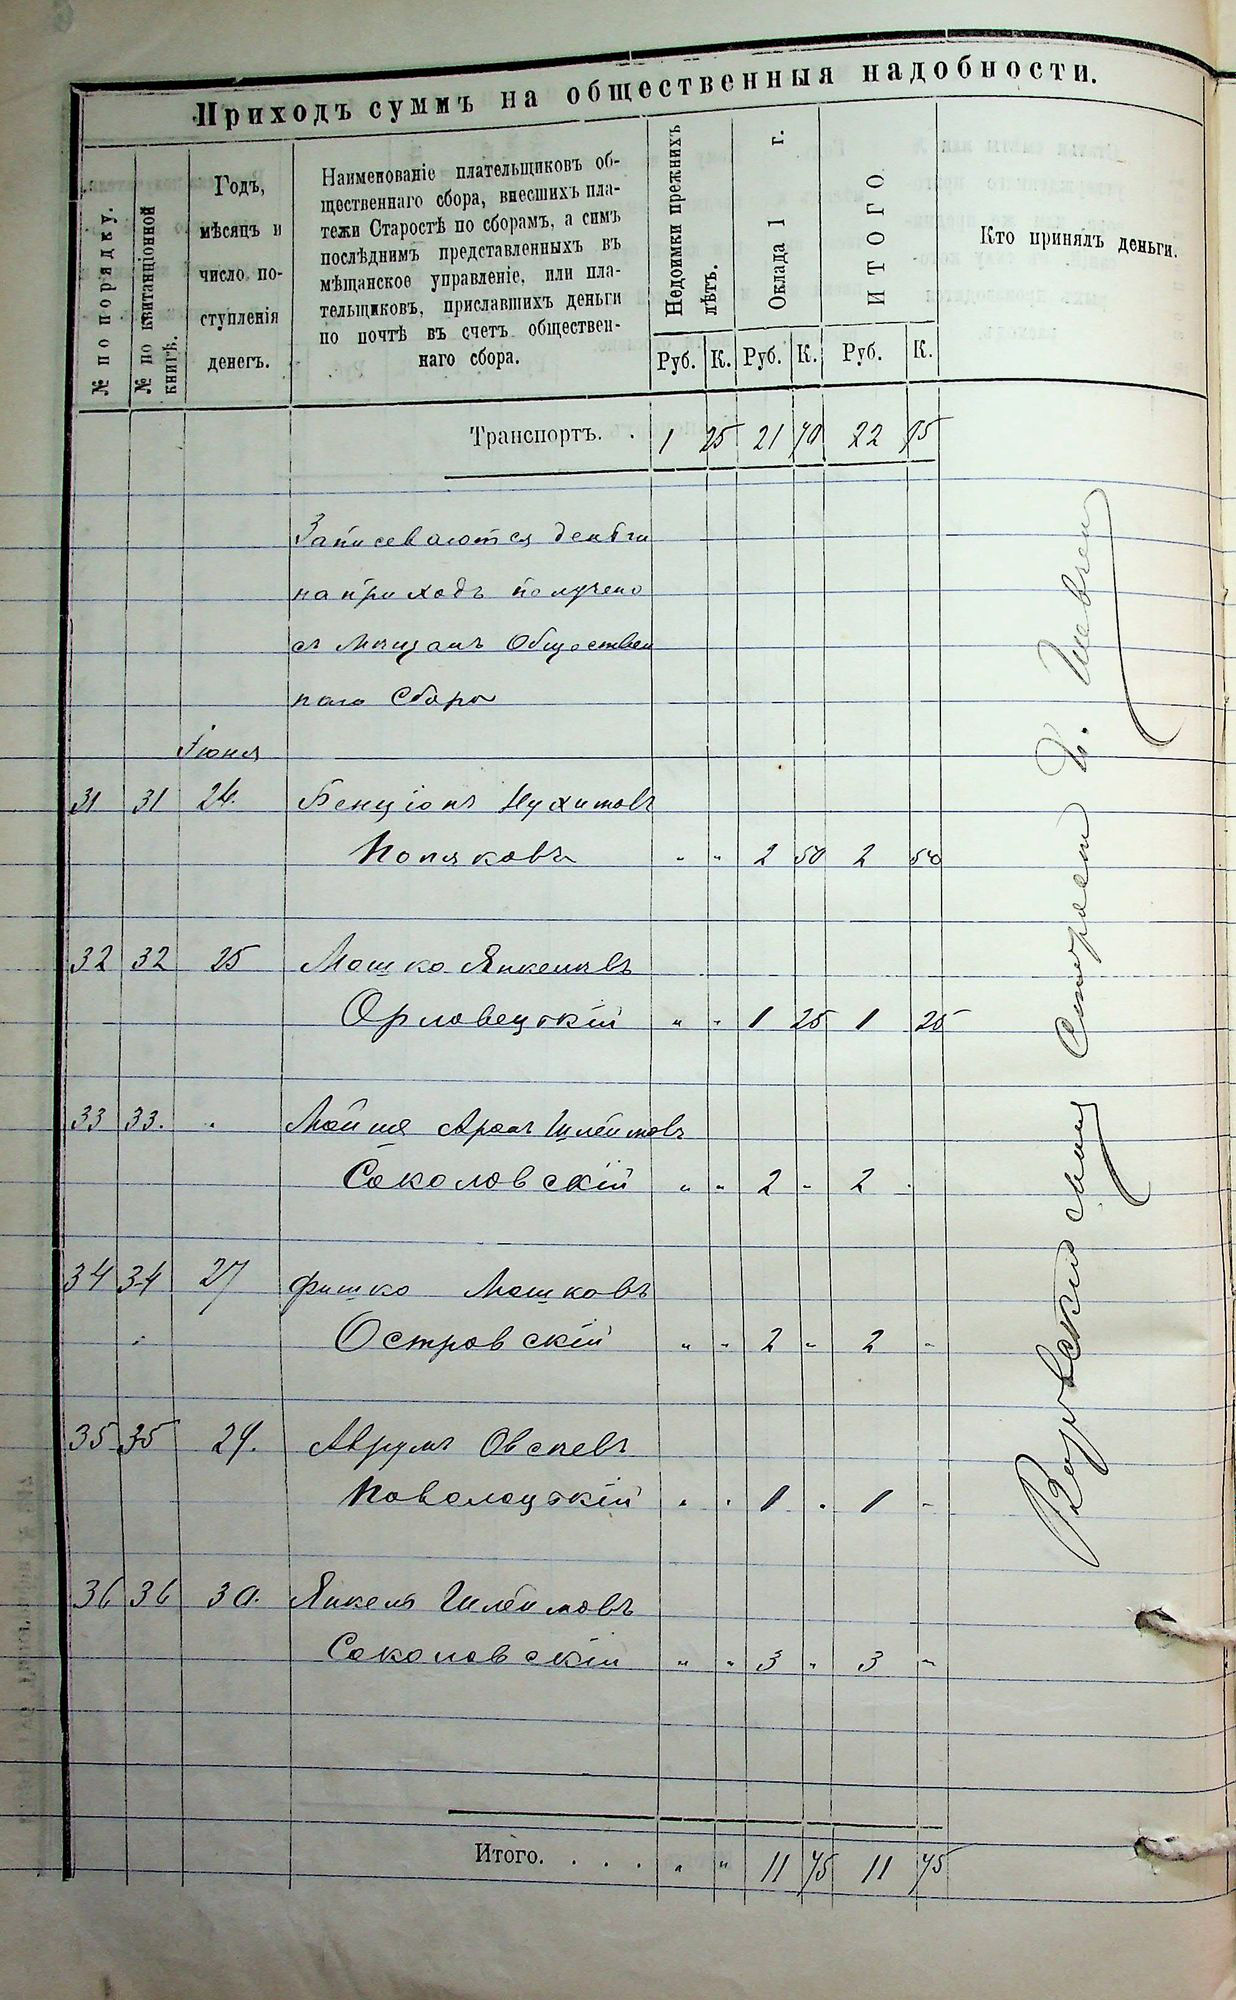 Приходъ суммъ на общественныя надобности.
№ по порядку.
№ по квитанціонной
книгѣ.
Годъ,
мѣсяцъ и
число по-
ступленія
денегъ.
Наименованіе плательщиковъ об-
щественнаго сбора, внесшихъ пла-
тежи Старостѣ по сборамъ, а симъ
послѣднимъ представленныхъ въ
мѣщанское управленіе, или пла-
тельщиковъ, приславшихъ деньги
по почтѣ въ счетъ обществен-
наго сбора.
Недоимки прежнихъ
лѣтъ.
Оклада 1 г.
ИТОГО
Кто принялъ деньги.
Руб. К. Руб. К. Руб. К.
Транспортъ. . 1 25 21 70 22 95
Записеваются деньги
на приходъ получено
съ мещанъ Обществен
наго Сбора
Іюня
31 31 24. Бенціонъ Нухимовъ
Поляковъ " " 2 50 2 50
32 32 25 Мошко Янкелевъ
Орловецкій " " 1 25 1 25
33 33. " Мойше Аронъ Шлёмовъ
Соколовскій " " 2 " 2 "
34 34 27 Фишко Мошковъ
Островскій " " 2 " 2 "
35 35 29. Аврумъ Овсеевъ
Поволоцкій " " 1 " 1 -
36 36 30. Янкель Шлёмовъ
Соколовскій " " 3 " 3 "
Итого. . . . " " 11 75 11 75
Старост